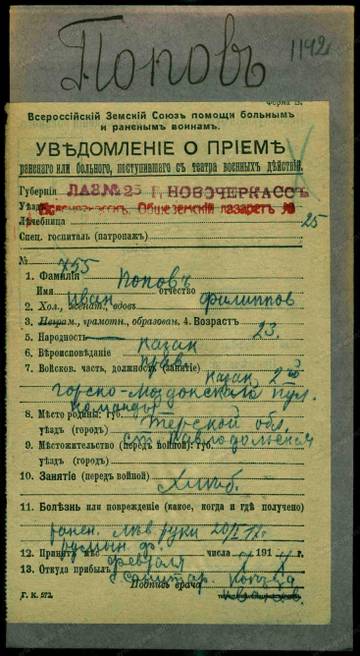 Поповъ 1142
Форма В.
Всероссійскій Земскій Союзъ помощи больнымъ
и раненымъ воинамъ.
УВѢДОМЛЕНІЕ О ПРІЕМѢ
раненаго или больного, поступившаго съ театра военныхъ дѣйствій.
Губернія ЛАЗ № 25 Г. НОВОЧЕРКАССЪ
Уѣздъ Новочеркасскъ, Общеземскій лазаретъ №
Лѣчебница 25
Спец. госпиталь (патронажъ)
№ 755
1. Фамилія Поповъ
Имя Иван отчество Филиппов
2. Хол., женат., вдовъ
3. Неграм., грамотн., образован. 4. Возрастъ 23.
5. Народность казак
6. Вѣроисповѣданіе прав.
7. Войсков. часть, должность (занятіе) казак 2го
Горско-Моздокскаго пул.
команды
8. Мѣсто родины: губ. Терской обл.
уѣздъ (город) ст. Павлодольская
9. Мѣстожительство (передъ войной): губ.
уѣздъ (город)
10. Занятіе (передъ войной) Хлѣб.
11. Болѣзнь или поврежденіе (какое, когда и гдѣ получено)
ранен. лѣв руки 20/I 17г.
румын. ф.
12. Принятъ мѣс. февраля числа 7 191 г.
13. Откуда прибылъ санитар. поѣзд
Подпись врача
Г. К. 972.